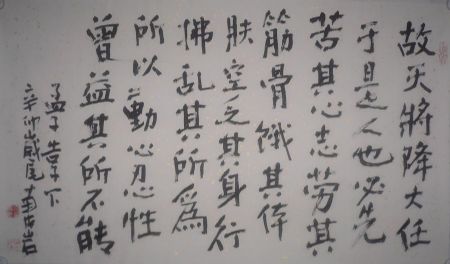 故天將降大任
于是人也必先
苦其心志劳其
筋骨餓其体
肤空乏其身行
拂乱其所為
所以動心忍性
曾益其所不能
孟子告子下
辛卯歲尾